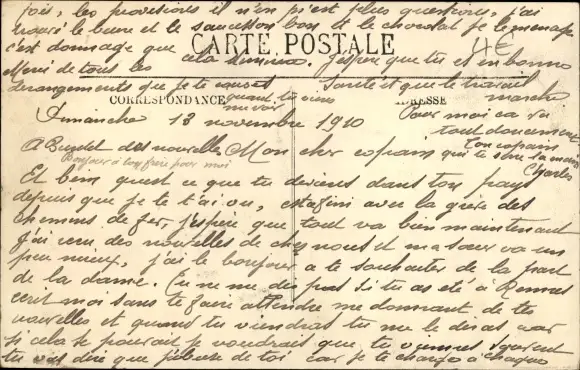 fois, les provisions il n'en n'est plus question, j'ai
trouvé le beurre et le saucisson bon et le chocolat je le ménage
CARTE POSTALE
4E
c'est dommage que cela diminue. J'espère que tu est en bonne
Merci de tous les
dérangements que je te Santé et que le travail
CORRESPONDANCE
quand tu viens
me voir
ADRESSE
marche
Dimanche 13 novembre 1910
Pour moi ca va
tout doucement
A Bientot des nouvelles
Mon cher copain
ton copain
qui te serre la main
Charles
Bonjour à ton frère pour moi
Et bien quest ce que tu deviens dans ton pays
depuis que je te t'ai vu, est a fini avec la grève des
chemins de fer, j'espère que tout va bien maintenant
j'ai reçu des nouvelles de chez nous et ma sœur va un
peu mieux, j'ai le bonjour a te souhaiter de la part
de la dame. Tu ne me dis pas si tu as été à Rennes
ecrit moi sans te faire attendre me donnant de tes
nouvelles et quand tu viendras tu me le diras car
si cela se pourait je voudrais que tu
tu vas dire que j'abuse de toi car je te charge à chaque